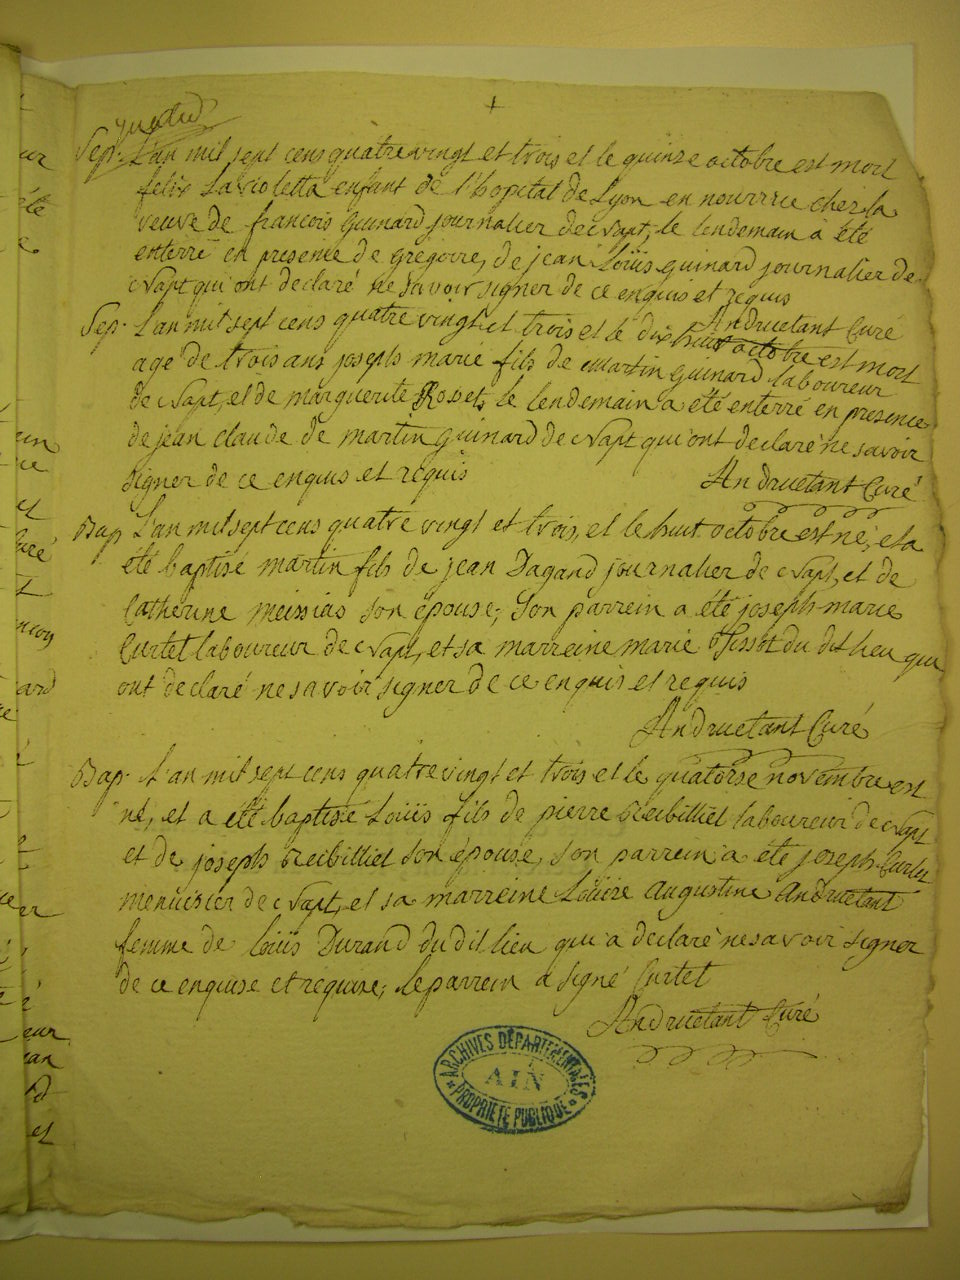 Sep. L'an mil sept cens quatre vingt et trois et le quinse octobre est mort
felix Lavioletta enfant de l'hopital de Lyon en nourrice chez la
veuve de francois guinard journalier de Napt, le lendemain a été
enterré en presence de gregoire, de jean Loüis guinard journalier de
Napt qui ont declaré ne savoir signer de ce enquis et requis
Andruetant Curé
Sep. L'an mil sept cens quatre vingt et trois et le dix huit octobre est mort
agé de trois ans joseph marie fils de martin guinard laboureur
de Napt, et de marguerite Rosset, le lendemain a été enterré en presence
de jean claude de martin guinard de Napt qui ont declaré ne savoir
signer de ce enquis et requis
Andruetant Curé
Bap. L'an mil sept cens quatre vingt et trois, et le huit octobre est né, et a
été baptisé martin fils de jean Dagand journalier de Napt, et de
Catherine meissias son épouse; son parrein a été joseph-marie
Curtet laboureur de Napt, et sa marreine marie du dit lieu qui
ont declaré ne savoir signer de ce enquis et requis
Andruetant Curé
Bap. L'an mil sept cens quatre vingt et trois et le quatorse novembre est
né, et a été baptisé Loüis fils de pierre Reibilliet laboureur de Napt
et de joseph Reibilliet son épouse, son parrein a été joseph Curtet
menuisier de Napt, et sa marreine Loüise augustine Andruetant
femme de loüis Durand du dit lieu qui a declaré ne savoir signer
de ce enquise et requise, le parrein a signé Curtet
Andruetant Curé
ARCHIVES DÉPARTEMENTALES
AIN
PROPRIÉTÉ PUBLIQUE